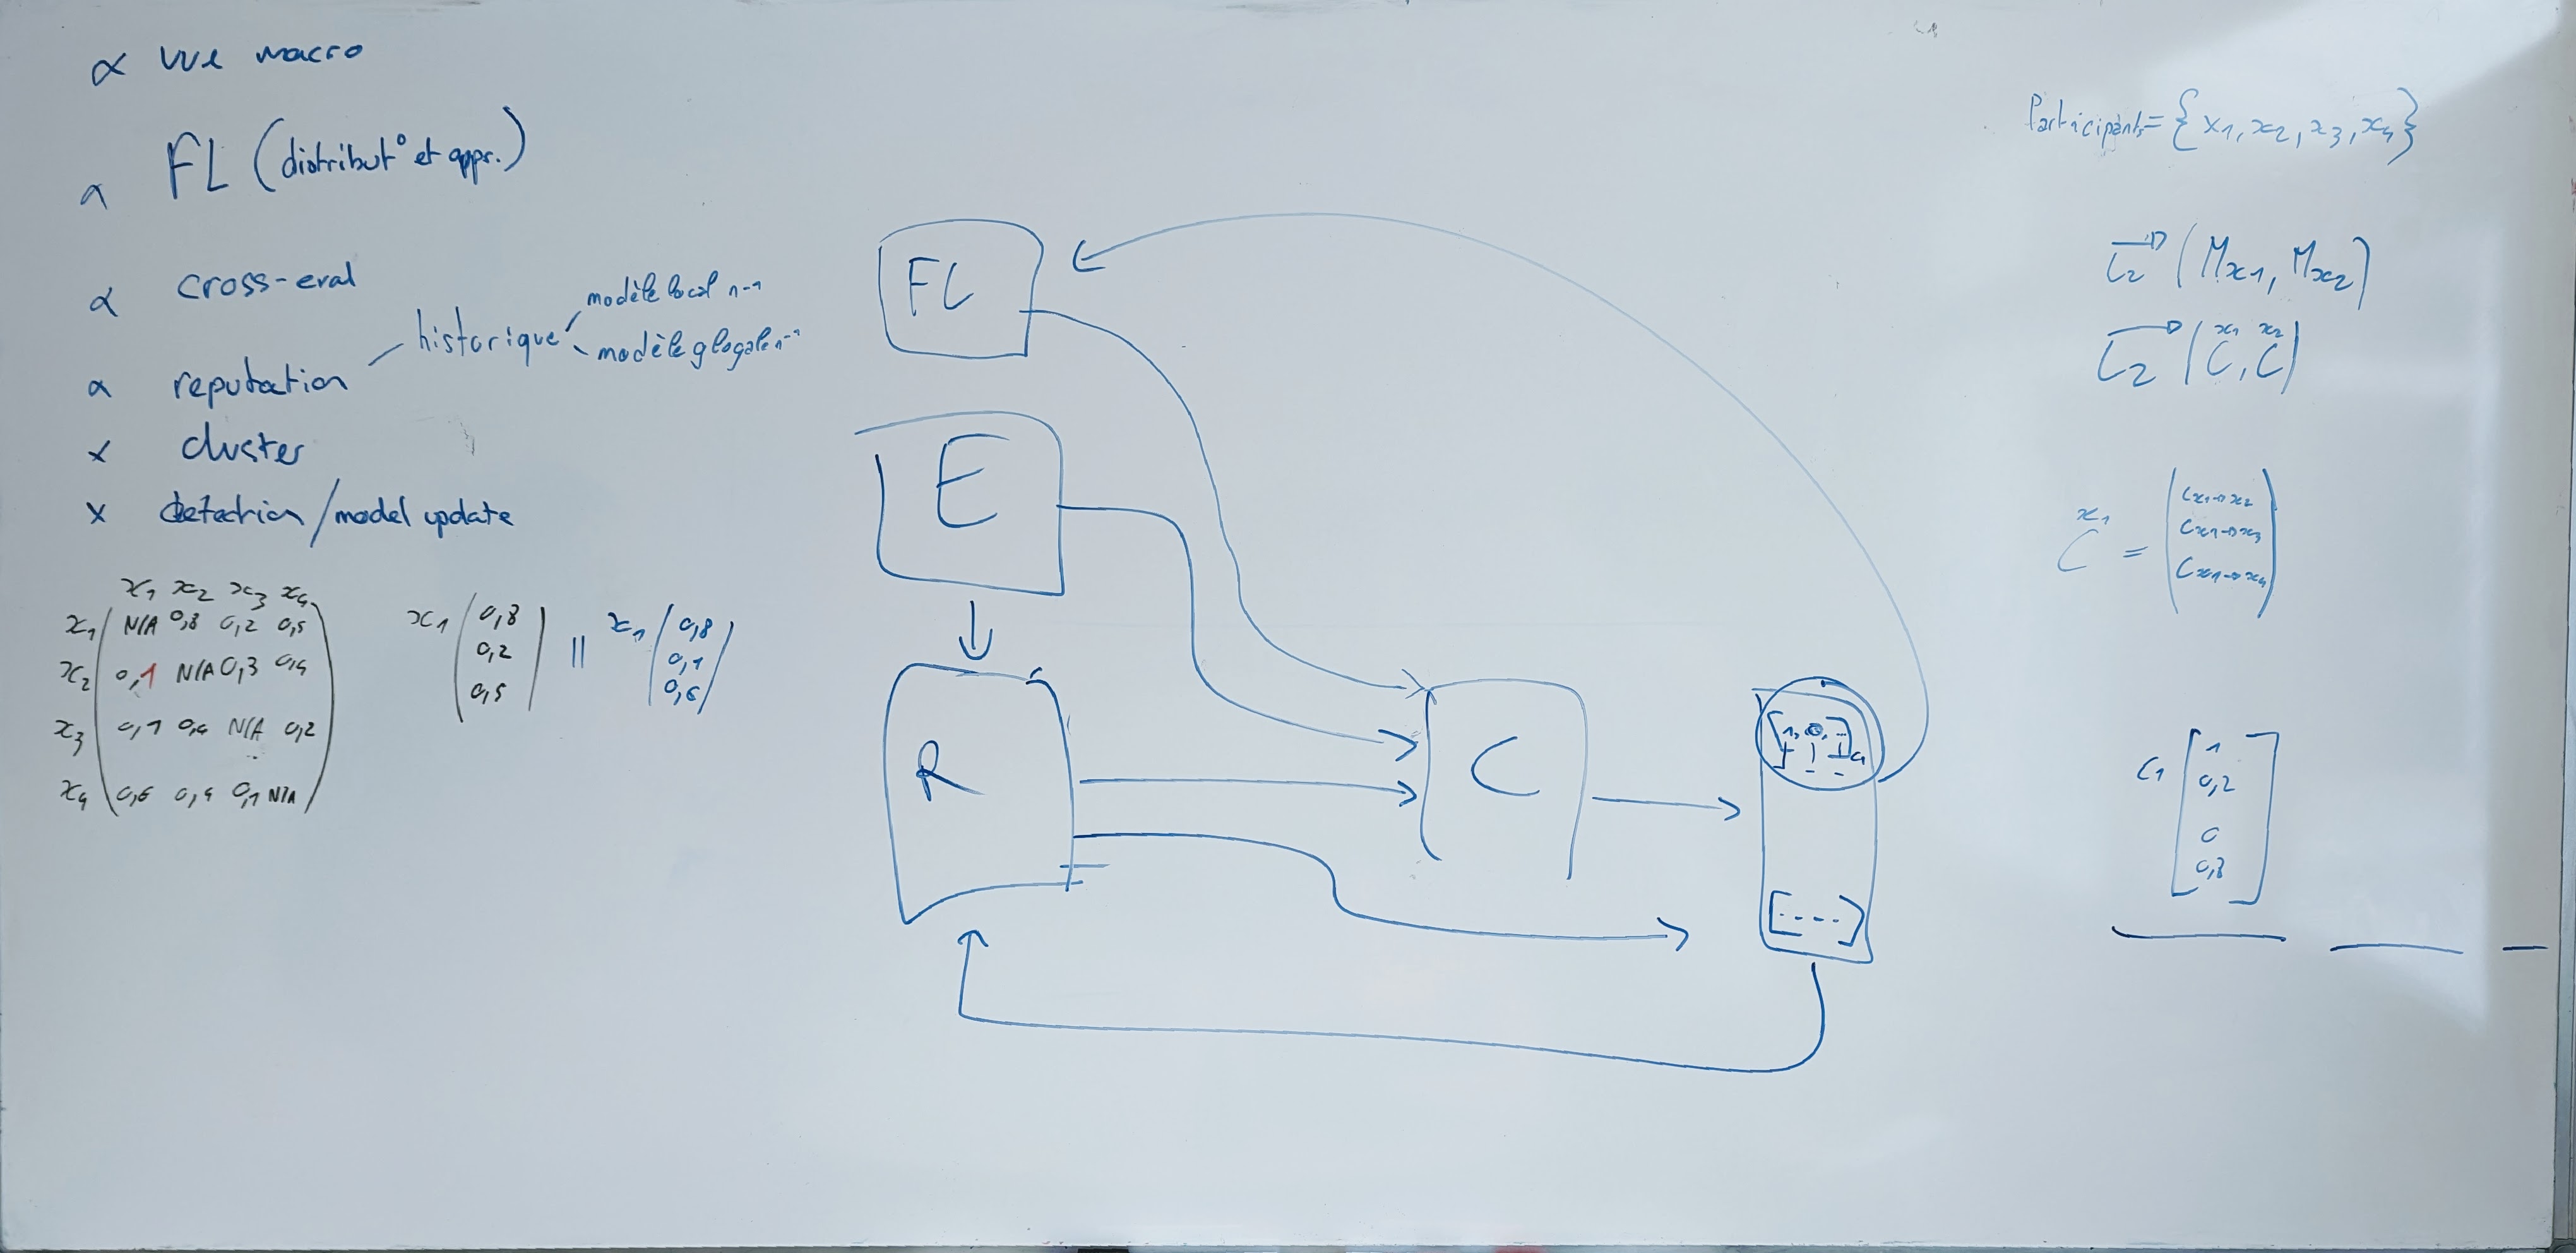 ∝ vue macro
∝ FL (distribut° et appr.)
∝ cross-eval
∝ reputation — historique
modèle local n-1
modèle glogale n-1
x cluster
x detection/model update
x1 x2 x3 x4
x1 N/A 0,8 0,2 0,5
x2 0,1 N/A 0,3 0,4
x3 0,1 0,4 N/A 0,2
x4 0,6 0,4 0,1 N/A
x1 (0,8
0,2
0,5)
||
x1 (0,8
0,1
0,6)
FL
E
R
C
[1, 0,
[----]
Participants = {x1, x2, x3, x4}
L2 (Mx1, Mx2)
L2 (C^x1, C^x2)
C^x1 =
Cx1→x2
Cx1→x3
Cx1→x4
C1
1
0,2
0
0,8